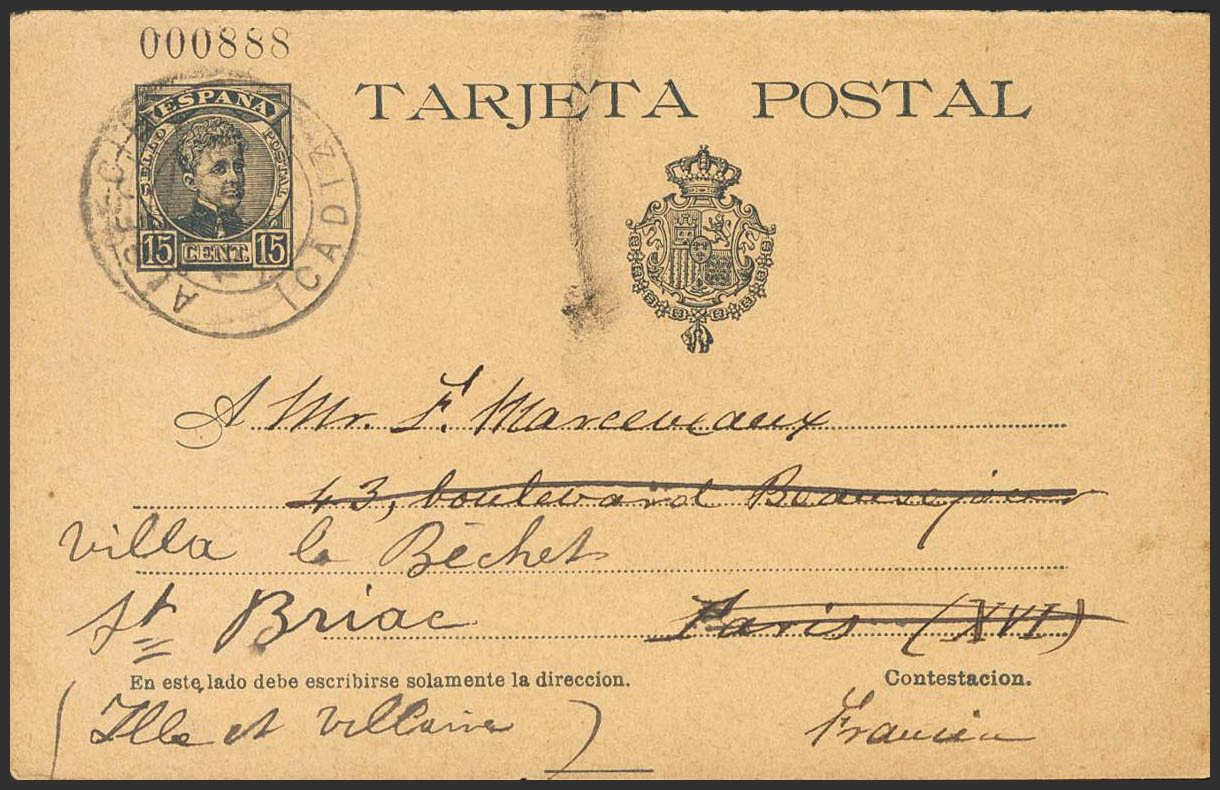 000888
ESPAÑA
SELLO POSTAL
15 CENT. 15
CADIZ
TARJETA POSTAL
A Mr. F.
43, boulevard Beausejour
Villa le Béchet
St Briac
Paris (XVI)
En este lado debe escribirse solamente la direccion.
Contestacion.
(Ille et Villaine)
Francia